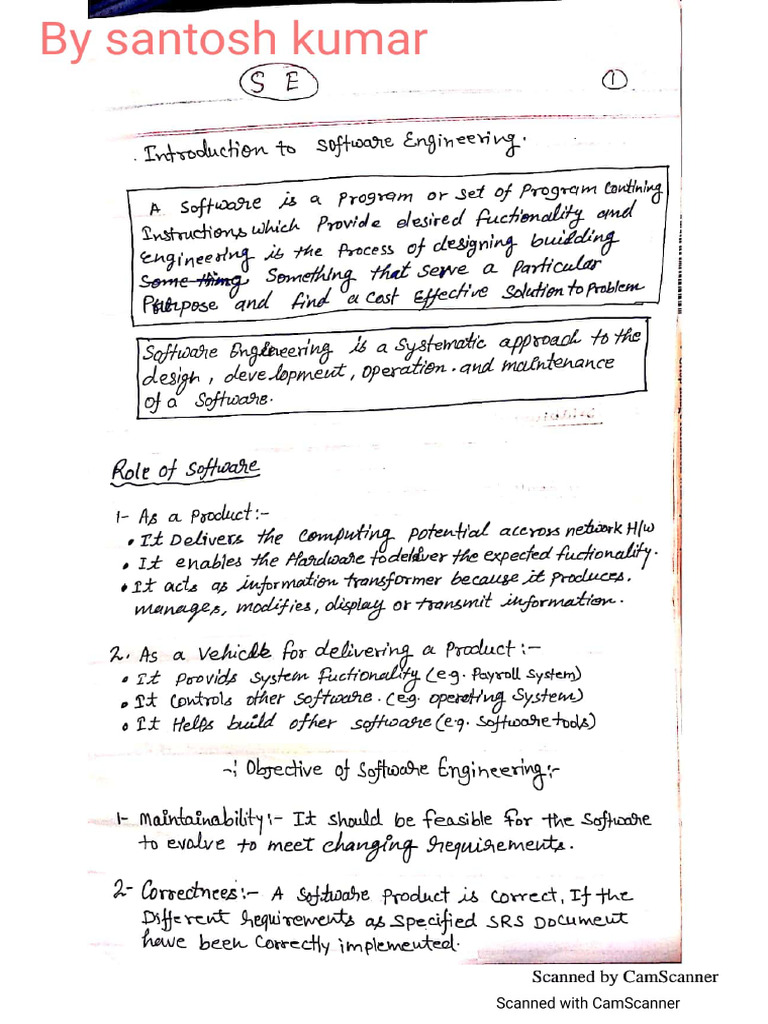 By santosh kumar
S E
1
. Introduction to Software Engineering.
A Software is a Program or set of Program Contining
Instructions which Provide desired fuctionality and
engineering is the Process of designing building
Some thing Something that serve a Particular
Purpose and find a Cost Effective Solution to Problem
Software Engineering is a Systematic approach to the
design, development, operation. and maintenance
of a Software.
Role of Software
1- As a Product:-
• It Delivers the Computing Potential accross network H/w
• It enables the Hardware to deliver the expected fuctionality.
• It acts as information transformer because it produces.
manages, modifies, display or transmit information.
2. As a Vehicle for delivering a Product:-
• It Provids System fuctionality (eg. Payroll System)
• It Controls other Software. (eg. Operating System)
• It Helps build other software (e.g. Software tools)
-: Objective of Software Engineering:-
1- Maintainability:- It should be feasible for the Software
to evolve to meet changing requirements.
2- Correctnees:- A Software Product is correct, If the
Different requirements as specified SRS Document
have been Correctly implemented.
Scanned by CamScanner
Scanned with CamScanner